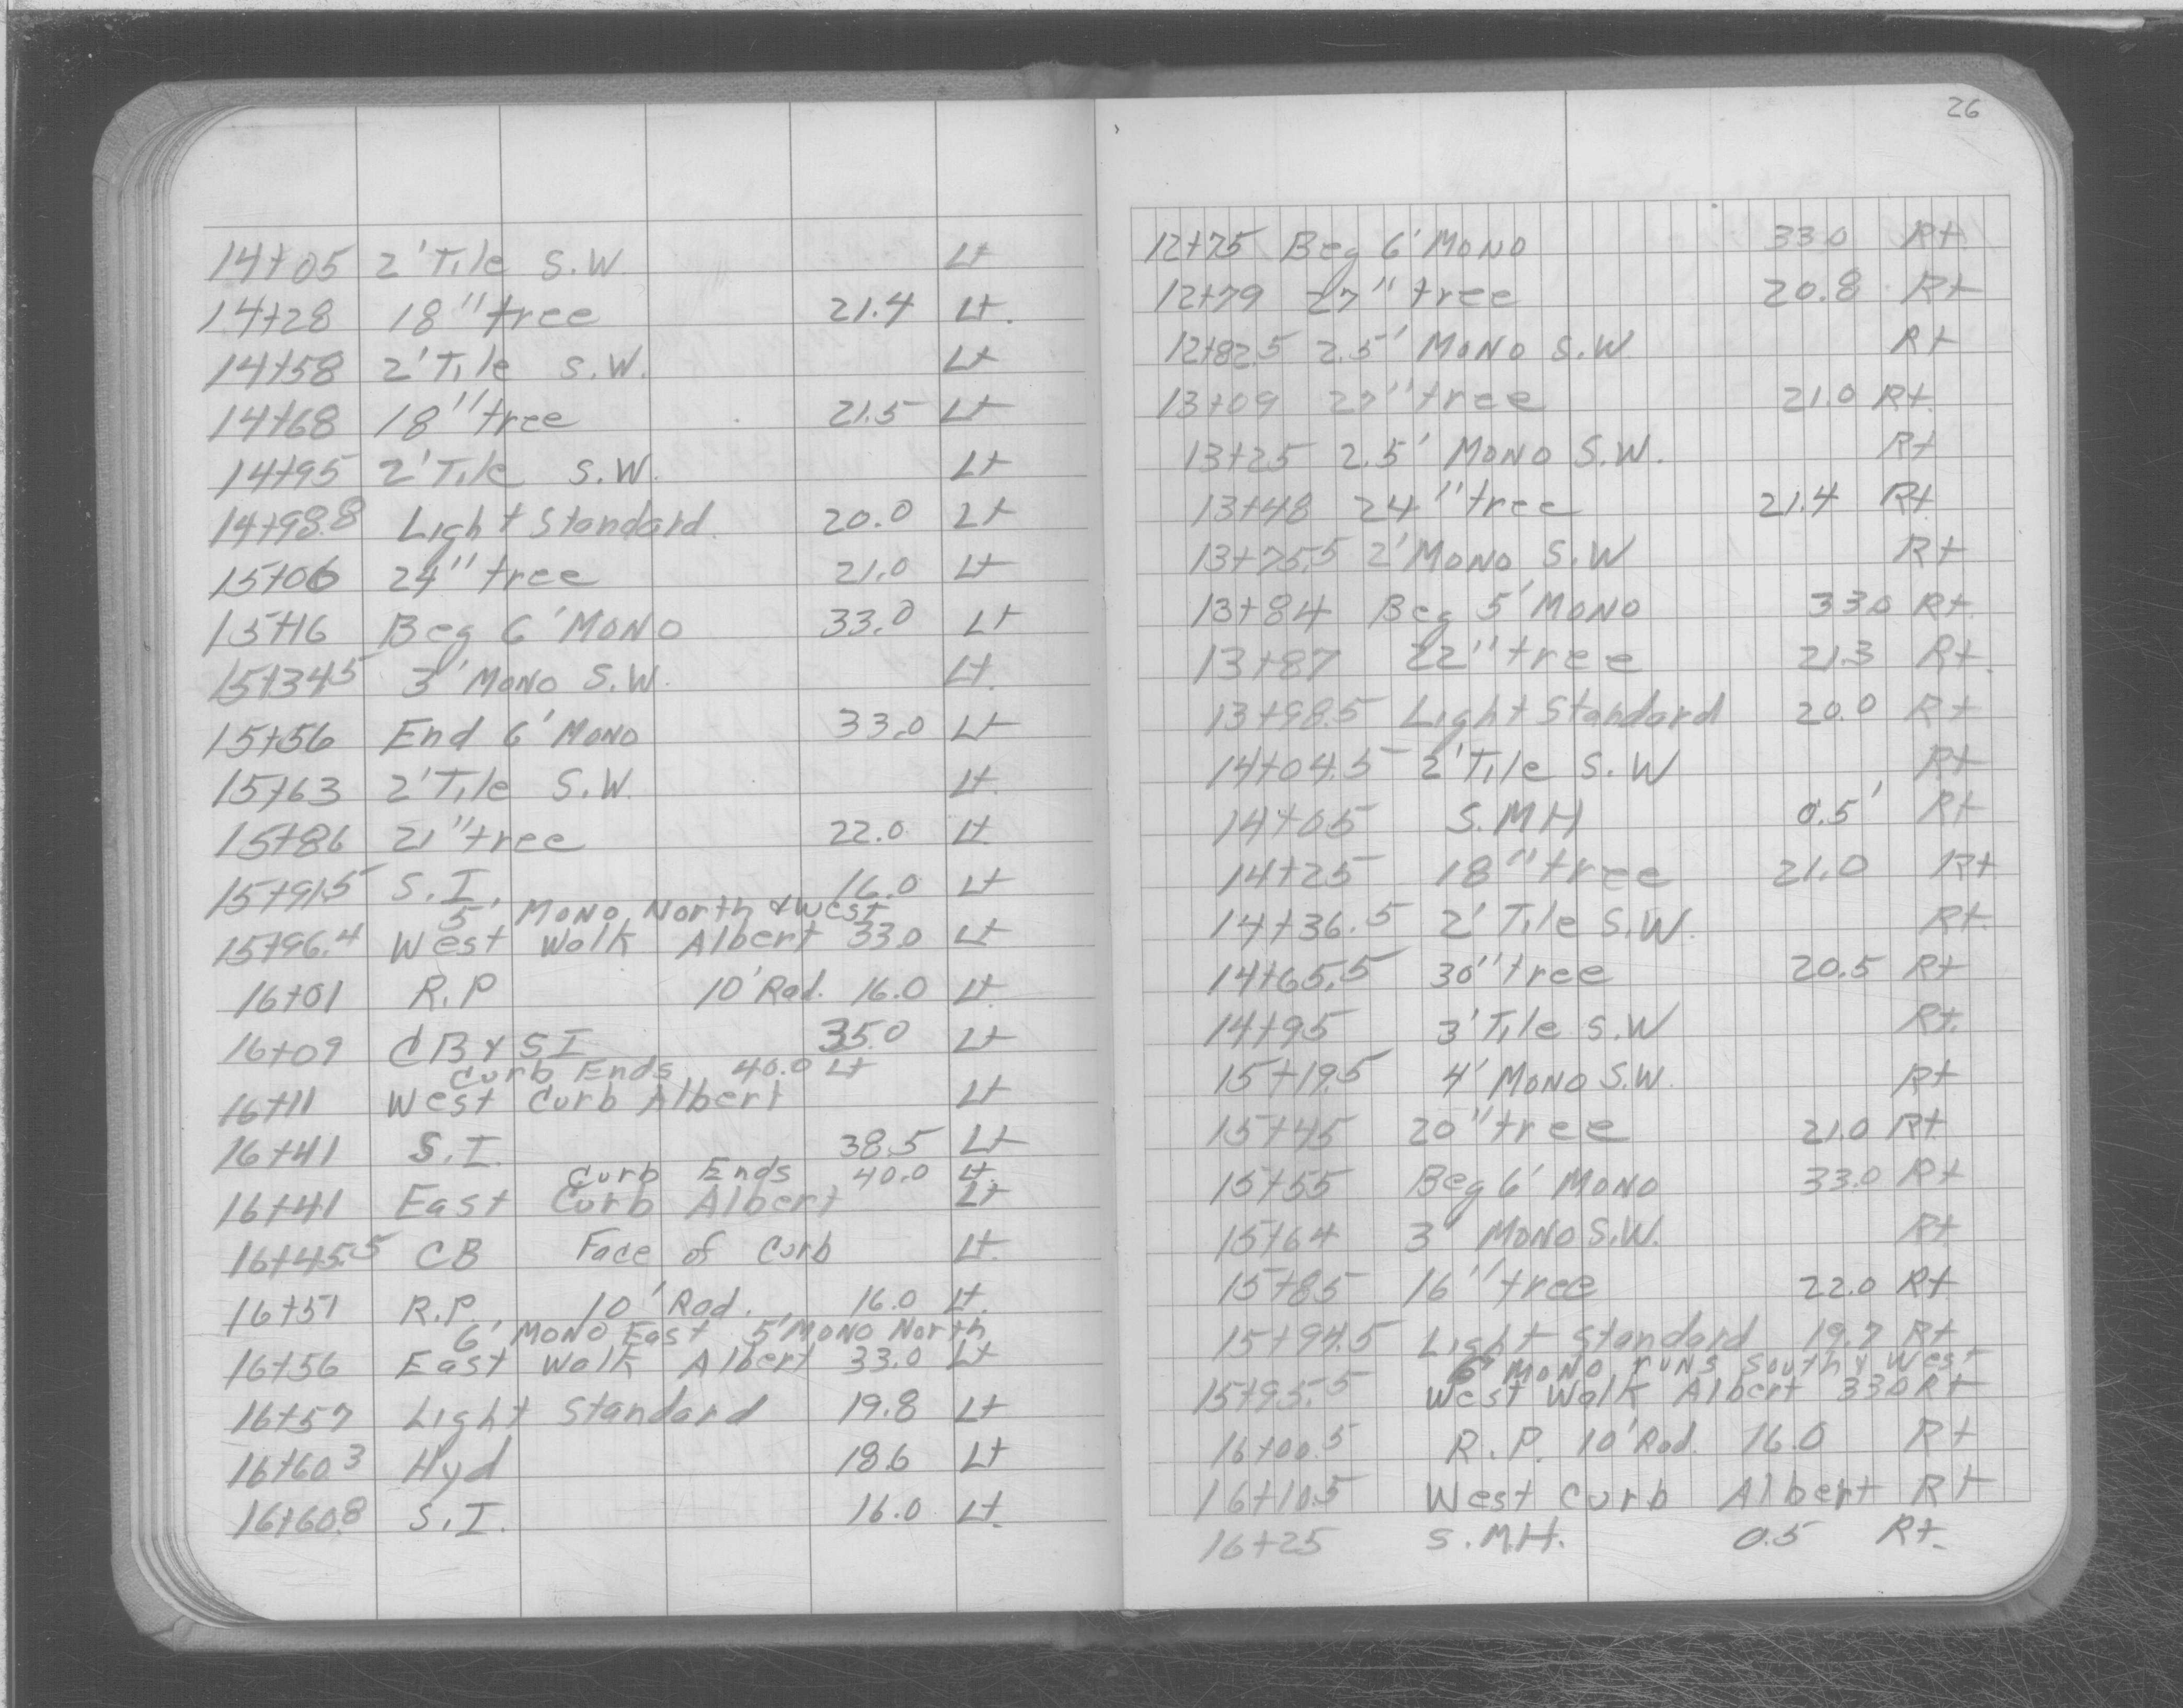 14+05 2' Tile S.W. Lt
14+28 18" tree 21.4 Lt.
14+58 2' Tile S.W. Lt
14+68 18" tree 21.5 Lt
14+95 2' Tile S.W. Lt
14+98.8 Light Standard. 20.0 Lt
15+06 24" tree 21.0 Lt
15+16 Beg 6' MONO 33.0 Lt
15+34.5 3' MONO S.W. Lt.
15+56 End 6' MONO 33.0 Lt
15+63 2' Tile S.W. Lt.
15+86 21" tree 22.0 Lt
15+91.5 S.I. 16.0 Lt
5' MONO North & West
15+96.4 West Walk Albert 33.0 Lt
16+01 R.P 10' Rad. 16.0 Lt.
16+09 CB & SI 35.0 Lt
Curb Ends 40.0 Lt
16+11 West Curb Albert Lt
16+41 S.I. 38.5 Lt
Curb Ends 40.0 Lt.
16+41 East Curb Albert Lt
16+45.5 CB Face of Curb Lt.
16+51 R.P. 10' Rad. 16.0 Lt.
6' MONO East 5' MONO North
16+56 East Walk Albert 33.0 Lt
16+57 Light Standard 19.8 Lt
16+60.3 Hyd 18.6 Lt
16+60.8 S.I. 16.0 Lt.
26
12+75 Beg 6' MONO 33.0 Rt.
12+79 27" tree 20.8 Rt
12+82.5 2.5' MONO S.W Rt
13+09 27" tree 21.0 Rt.
13+25 2.5' MONO S.W. Rt
13+48 24" tree 21.4 Rt.
13+75.5 2' MONO S.W Rt
13+84 Beg 5' MONO 33.0 Rt.
13+87 22" tree 21.3 Rt.
13+98.5 Light Standard 20.0 Rt
14+04.5 2' Tile S.W Rt
14+05 S.MH 0.5' Rt
14+25 18" tree 21.0 Rt
14+36.5 2' Tile S.W. Rt.
14+65.5 30" tree 20.5 Rt
14+95 3' Tile S.W Rt.
15+19.5 4' MONO S.W. Rt
15+45 20" tree 21.0 Rt.
15+55 Beg 6' MONO 33.0 Rt
15+64 3' MONO S.W. Rt
15+85 16" tree 22.0 Rt
15+94.5 Light Standard 19.7 Rt
6' MONO runs South & West
15+95.5 West Walk Albert 33.0 Rt
16+00.5 R.P. 10' Rad. 16.0 Rt
16+10.5 West Curb Albert Rt
16+25 S.M.H. 0.5 Rt.